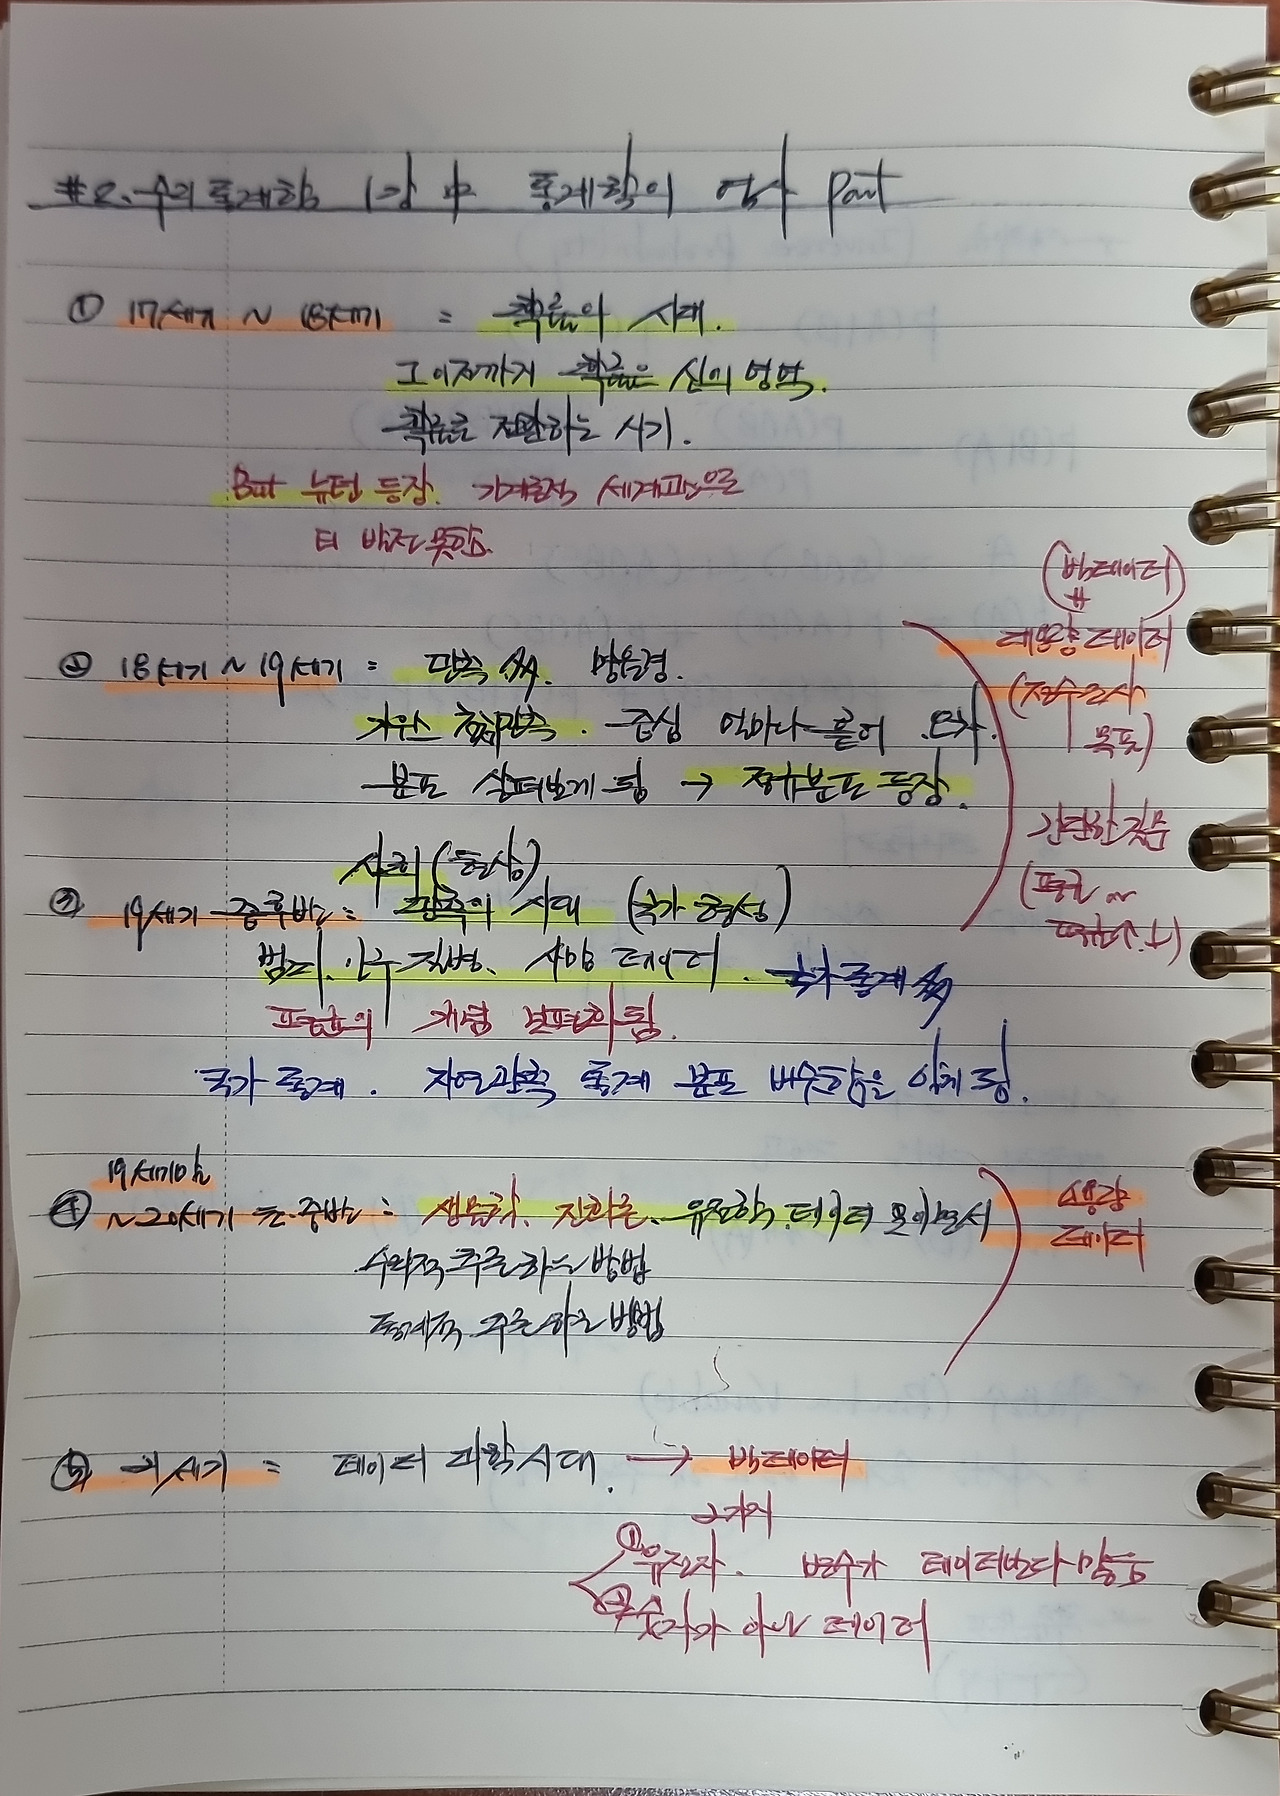 #2. 수리통계학 1강 中 통계학의 역사 Part
① 17세기 ~ 18세기 = 확률의 시대.
그 이전까지 확률은 신의 영역.
확률로 전환하는 시기.
But 뉴턴 등장. 기계론적 세계관으로
더 발전 못함.
② 18세기 ~ 19세기 = 관측 多. 망원경.
가우스 천체관측. 중심 얼마나 흩어 오차.
분포 살펴보게 됨 → 정규분포 등장.
(빅데이터)
대용량 데이터
(전수조사
목표)
간단한 질문
(평균 ~
평균↑.↓)
사회(현상)
③ 19세기 중후반 = 관측의 시대 (국가 형성)
범죄, 인구, 질병, 사망 데이터. 국가 통계 多
평균의 개념 보편화 됨.
국가 통계. 자연관측 통계 분포 비슷함을 알게 됨.
19세기말
④ ~20세기 초·중반 = 생물학, 진화론, 유전학, 데이터 모이면서
수학적 추론하는 방법
통계적 추론하는 방법
소용량
데이터
⑤ 21세기 = 데이터 과학시대. → 빅데이터
① 유전자. 변수가 데이터보다 많음
② 숫자가 아닌 데이터